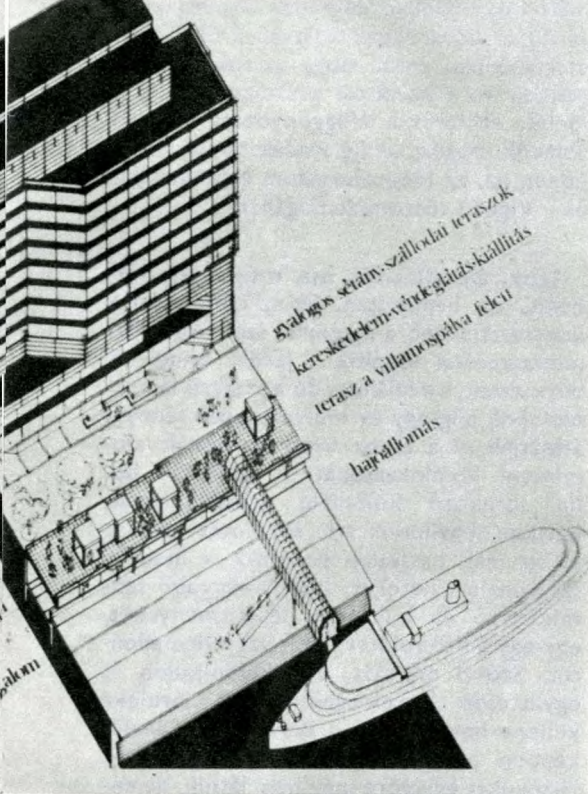 gyalogos sétány-szállodai teraszok
kereskedelem-vendéglátás-kiállítás
terasz a villamospálya felett
hajóállomás
galom